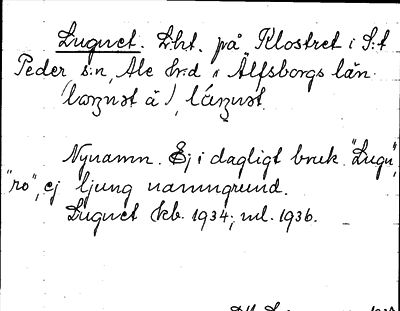 Lugnet. Lht. på Klostret i S:t
Peder s:n, Ale hd i Älfsborgs län.
Nynamn. Ej i dagligt bruk. "Lugn",
"ro", ej ljung namngrund.
Lugnet kb. 1934; ml. 1936.